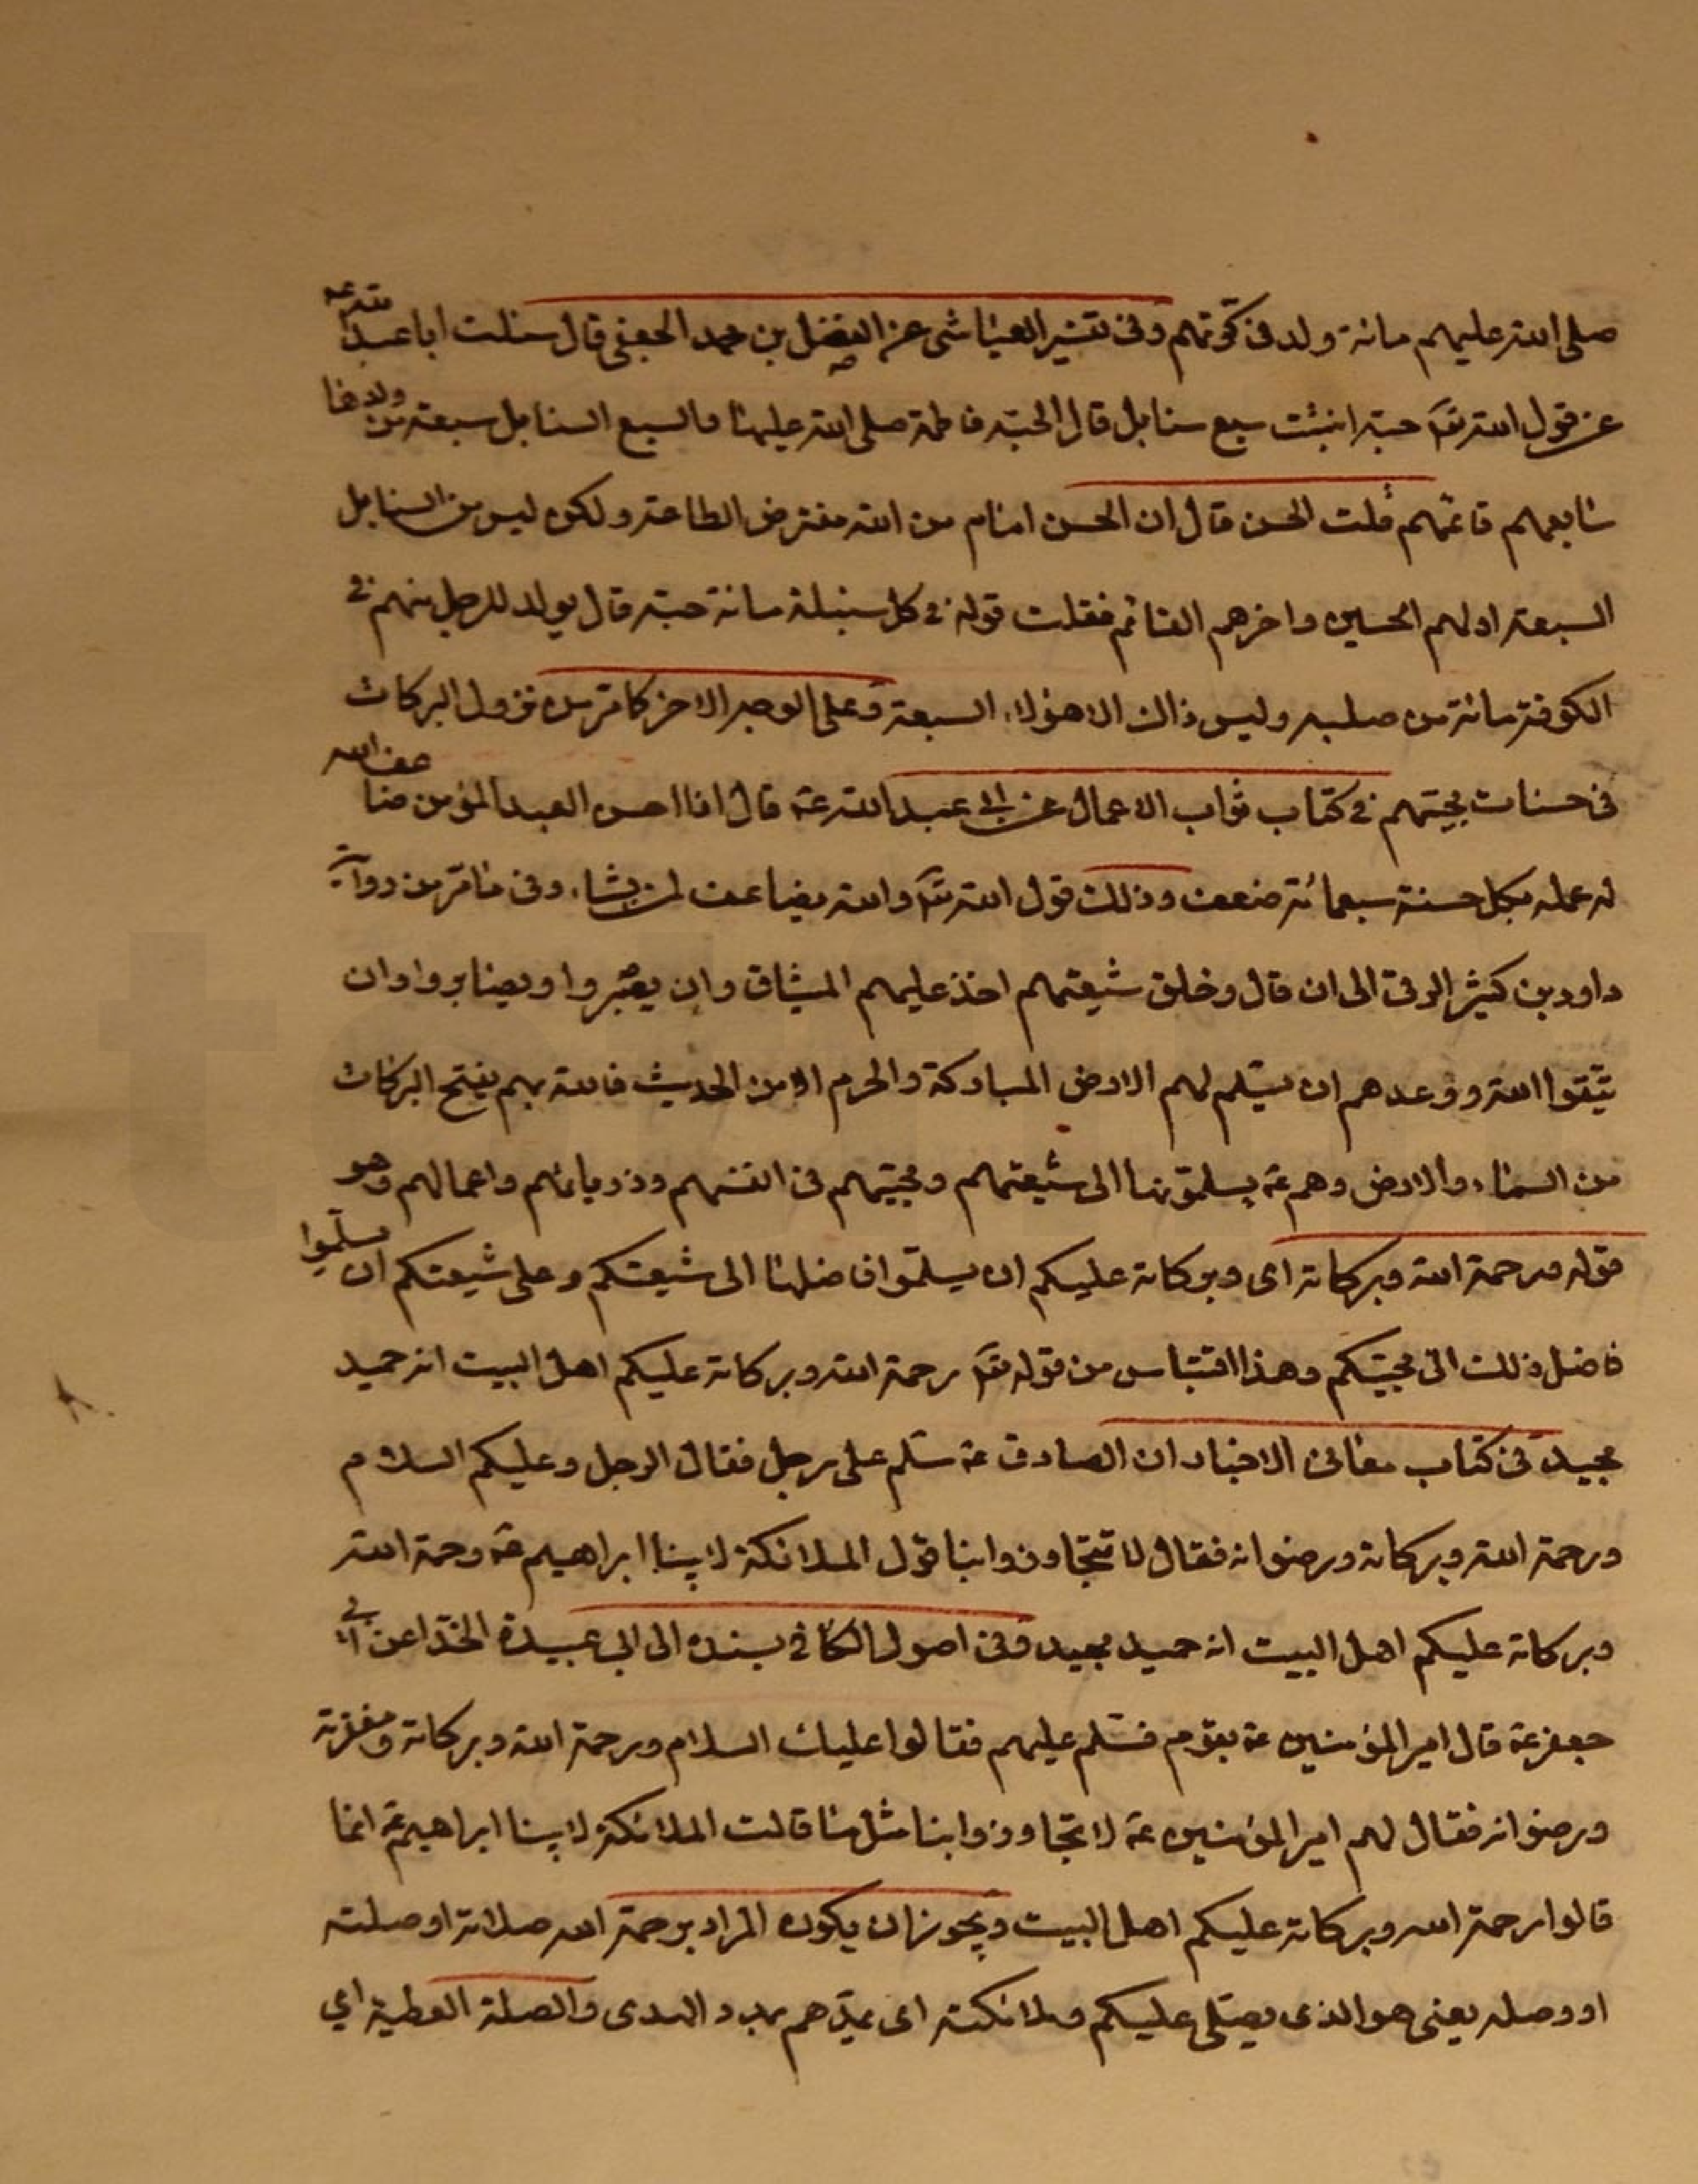 صلى الله عليهم مائة ولد في كرتهم وفي تفسير العياشي عن المفضل بن محمد الجعفي قال سئلت ابا عبد الله ع
عن قول الله تع حبة انبتت سبع سنابل قال الحبة فاطمة صلى الله عليها والسبع السنابل سبعة من ولدها
سابعهم قائمهم قلت الحسن قال ان الحسن امام من الله مفترض الطاعة ولكن ليس من السنابل
السبعة اولهم الحسين واخرهم القائم فقلت قوله في كل سنبلة مائة حبة قال يولد للرجل منهم في
الكوفة مائة من صلبه وليس ذاك الا هؤلاء السبعة وعلى الوجه الاخر كما مر من نزول البركات
في حسنات محبيهم في كتاب ثواب الاعمال عن ابي عبد الله ع قال اذا احسن العبد المؤمن ضاعف الله
له عمله بكل حسنة سبعمائة ضعف وذلك قول الله تع والله يضاعف لمن يشاء وفي ما مر من رواية
داود بن كثير الرقي الى ان قال وخلق شيعتهم اخذ عليهم الميثاق وان يصبروا ويصابروا وان
يتقوا الله ووعدهم ان يسلم لهم الارض المباركة والحرم الامن الحديث فالله بهم يفتح البركات
من السماء والارض وهم ع يسلمونها الى شيعتهم ومحبيهم في انفسهم وذرياتهم واعمالهم وهو
قوله ورحمة الله وبركاته اى وبركاته عليكم ان يسلموا فاضلها الى شيعتكم وعلى شيعتكم ان يسلموا
فاضل ذلك الى محبيكم وهذا اقتباس من قوله تع رحمة الله وبركاته عليكم اهل البيت انه حميد
مجيد في كتاب معاني الاخبار ان الصادق ع سلم على رجل فقال الرجل وعليكم السلام
ورحمة الله وبركاته ورضوانه فقال لا تتجاوزوا بنا قول الملائكة لابينا ابراهيم ع رحمة الله
وبركاته عليكم اهل البيت انه حميد مجيد وفي اصول الكافي بسنده الى ابي عبيدة الحذا عن ابي
جعفر ع قال امير المؤمنين ع بقوم فسلم عليهم فقالوا عليك السلام ورحمة الله وبركاته ومغفرته
ورضوانه فقال لهم امير المؤمنين ع لا تجاوزوا بنا مثل ما قالت الملائكة لابينا ابراهيم ع انما
قالوا رحمة الله وبركاته عليكم اهل البيت ويجوز ان يكون المراد برحمة الله صلاته او صلته
او وصله يعني هو الذى يصلى عليكم وملائكته اى يمدهم بمدد الهدى والصلة العطية اي